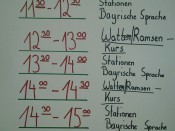 11³⁰ - 12³⁰ Stationen
Bayrische Sprache
12³⁰ - 13⁰⁰ Watten/Ramsen -
Kurs
13³⁰ - 14⁰⁰ Stationen
Bayrische Sprache
14⁰⁰ - 14³⁰ Watten/Ramsen -
Kurs
14³⁰ - 15⁰⁰ Stationen
Bayrische Sprache